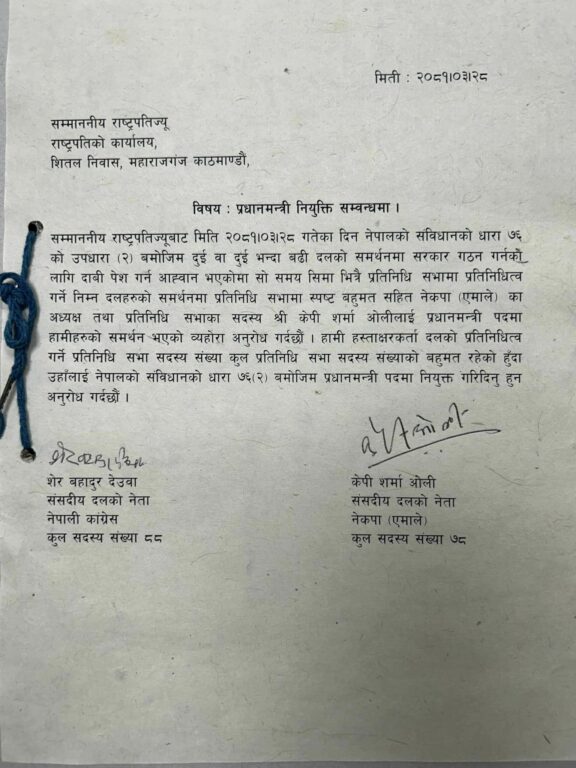 मिती : २०८१।०३।२८
सम्माननीय राष्ट्रपतिज्यू
राष्ट्रपतिको कार्यालय,
शितल निवास, महाराजगंज काठमाण्डौं,
विषय : प्रधानमन्त्री नियुक्ति सम्वन्धमा ।
सम्माननीय राष्ट्रपतिज्यूबाट मिति २०८१।०३।२८ गतेका दिन नेपालको संविधानको धारा ७६
को उपधारा (२) बमोजिम दुई वा दुई भन्दा बढी दलको समर्थनमा सरकार गठन गर्नको
लागि दावी पेश गर्न आह्वान भएकोमा सो समय सिमा भित्रै प्रतिनिधि सभामा प्रतिनिधित्व
गर्ने निम्न दलहरुको समर्थनमा प्रतिनिधि सभामा स्पष्ट बहुमत सहित नेकपा (एमाले) का
अध्यक्ष तथा प्रतिनिधि सभाका सदस्य श्री केपी शर्मा ओलीलाई प्रधानमन्त्री पदमा
हामीहरुको समर्थन भएको व्यहोरा अनुरोध गर्दछौं । हामी हस्ताक्षरकर्ता दलको प्रतिनिधित्व
गर्ने प्रतिनिधि सभा सदस्य संख्या कुल प्रतिनिधि सभा सदस्य संख्याको बहुमत रहेको हुँदा
उहाँलाई नेपालको संविधानको धारा ७६(२) बमोजिम प्रधानमन्त्री पदमा नियुक्त गरिदिनु हुन
अनुरोध गर्दछौं ।
शेर बहादुर देउवा
संसदीय दलको नेता
नेपाली कांग्रेस
कुल सदस्य संख्या ८८
केपी शर्मा ओली
संसदीय दलको नेता
नेकपा (एमाले)
कुल सदस्य संख्या ७८